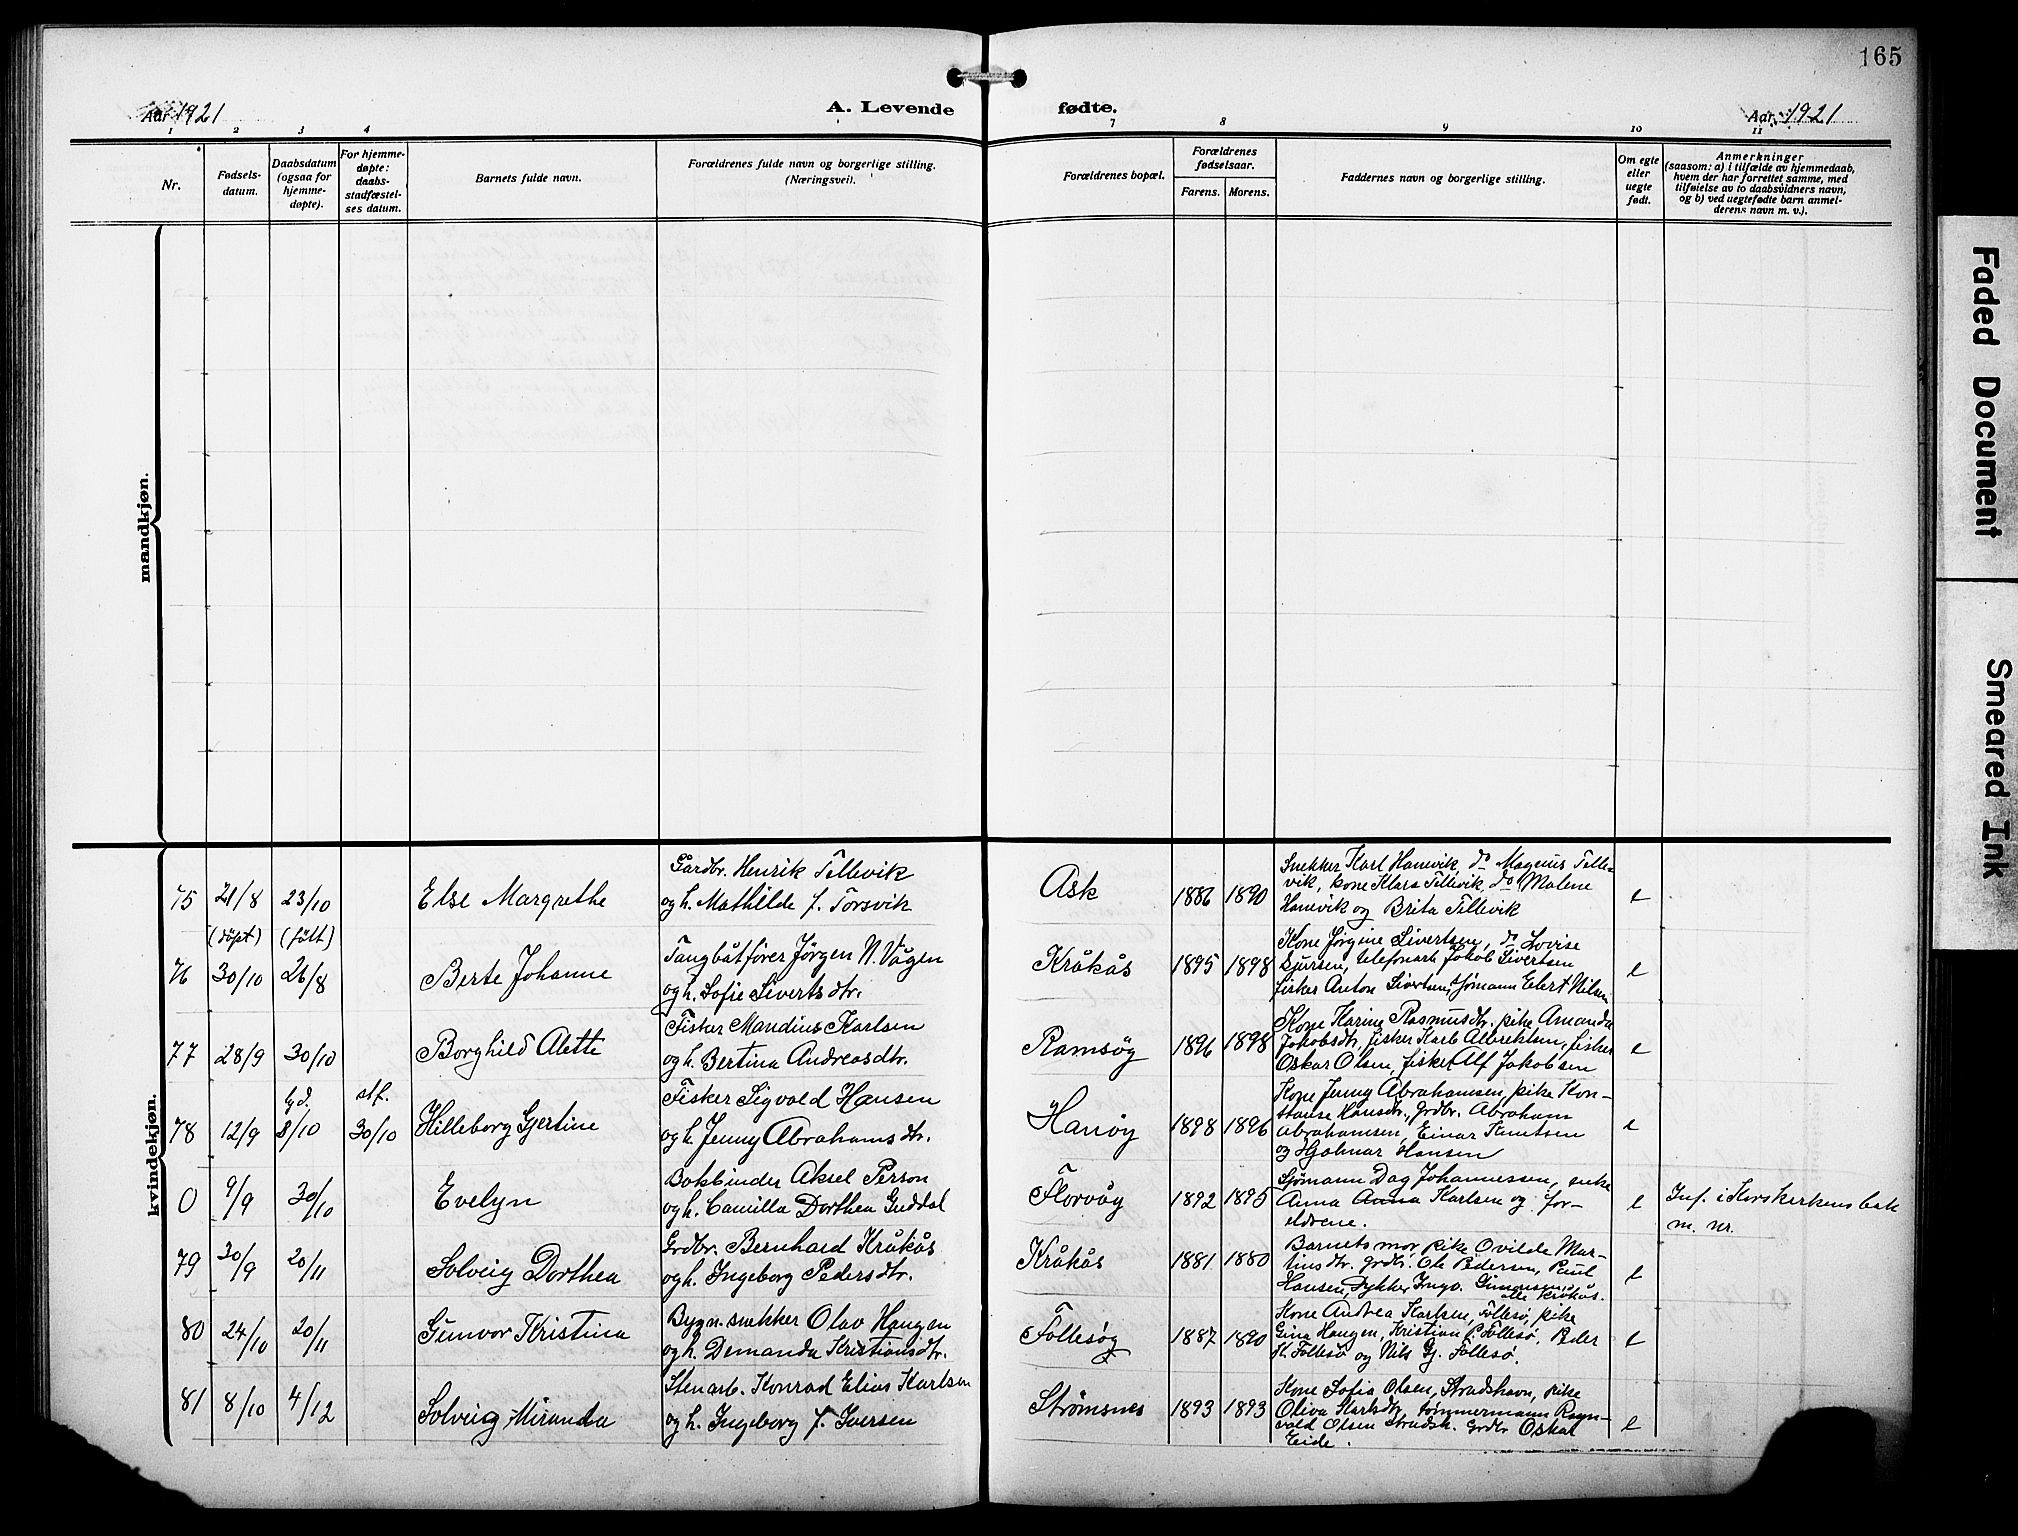 165
Aar 1921
A. Levende fødte.
Aar 1921
1 2 3 4 7 8 9 10 11
Nr.
Fødsels-
datum.
Daabsdatum
(ogsaa for
hjemme-
døpte).
For hjemme-
døpte:
daabs-
stadfæstel-
ses datum.
Barnets fulde navn.
Forældrenes fulde navn og borgerlige stilling.
(Næringsvei).
Forældrenes bopæl.
Forældrenes
fødselsaar.
Farens. Morens.
Faddernes navn og borgerlige stilling.
Om egte
eller
uegte
født.
Anmerkninger
(saasom: a) i tilfælde av hjemmedaab,
hvem der har forrettet samme, med
tilføielse av to daabsvidners navn,
og b) ved uegtefødte barn anmel-
derens navn m. v.).
mandkjøn.
kvindekjøn.
75 21/8 23/10 Else Margrethe
Gardbr. Henrik Tellevik
og h. Mathilde f. Torsvik
Ask 1886 1890
Snekker Karl Hanevik, do Magnus Telle-
vik, kone Klara Tellevik, do Malene
Hanevik og Brita Tellevik
e
(döpt) (født)
76 30/10 26/8 Berte Johanne
Tangbåtfører Jørgen N. Vågen
og h. Sofie Siverts dtr.
Kråkås 1895 1898
Kone Jørgine Sivertsen, do Lovise
Sjursen, telefonarb. Jakob Sivertsen
fisker Anton Sivertsen, sjømann Elert Nilsen
e
77 28/9 30/10 Borghild Alette
Fisker Mandius Karlsen
og h. Bertina Andreasdtr.
Ramsøy 1896 1898
Kone Karine Rasmusdtr. pike Amanda
Jakobsdtr, fisker Karl Albrektsen, fisker
Oskar Olsen, fisker Alf Jakobsen
e
78 12/9 8/10 stf. 30/10 Hilleborg Gjertine
Fisker Sigvald Hansen
og h. Jenny Abrahams dtr.
Hanøy 1898 1896
Kone Jenny Abrahamsen, pike Kon-
stanse Hansdtr., grdbr. Abraham
Abrahamsen, Einar Knutsen
og Hjalmar Hansen
e
0 9/9 30/10 Evelyn
Bokbinder Aksel Person
og h. Camilla Dorthea Guddal
Florvåg 1892 1895
Sjømann Dag Johannessen, enke
Anna Anna Karlsen og for-
eldrene.
e
Inf. i Korskirkens bok
m. nr.
79 30/9 20/11 Solveig Dorthea
Grdbr. Bernhard Kråkås
og h. Ingeborg Pedersdtr.
Kråkås 1881 1880
Barnets mor, pike Ovilde Mar-
tinsdtr. grdbr. Ole Pedersen, Paul
Hansen, Dykker Ingv.
alle Kråkås.
e
80 24/10 20/11 Gunvor Kristina
Bygn. snekker Olav Haugen
og h. Demanda Kristiansdtr.
Follesøy 1887 1890
Kone Andrea Karlsen, Follesø, pike
Gina Haugen, Kristian P. Follesø, Peder
K. Follesø og Nils Gj. Follesø.
e
81 8/10 4/12 Solveig Miranda
Stenarb. Konrad Elias Karlsen
og h. Ingeborg f. Iversen
Strømsnes 1893 1893
Kone Sofia Olsen, Strudshavn, pike
Oliva Karlsdtr, tømmermann Ragn-
vald Olsen Strudsh. Grdbr Oskar
Eide.
e
Faded Document
Smeared Ink